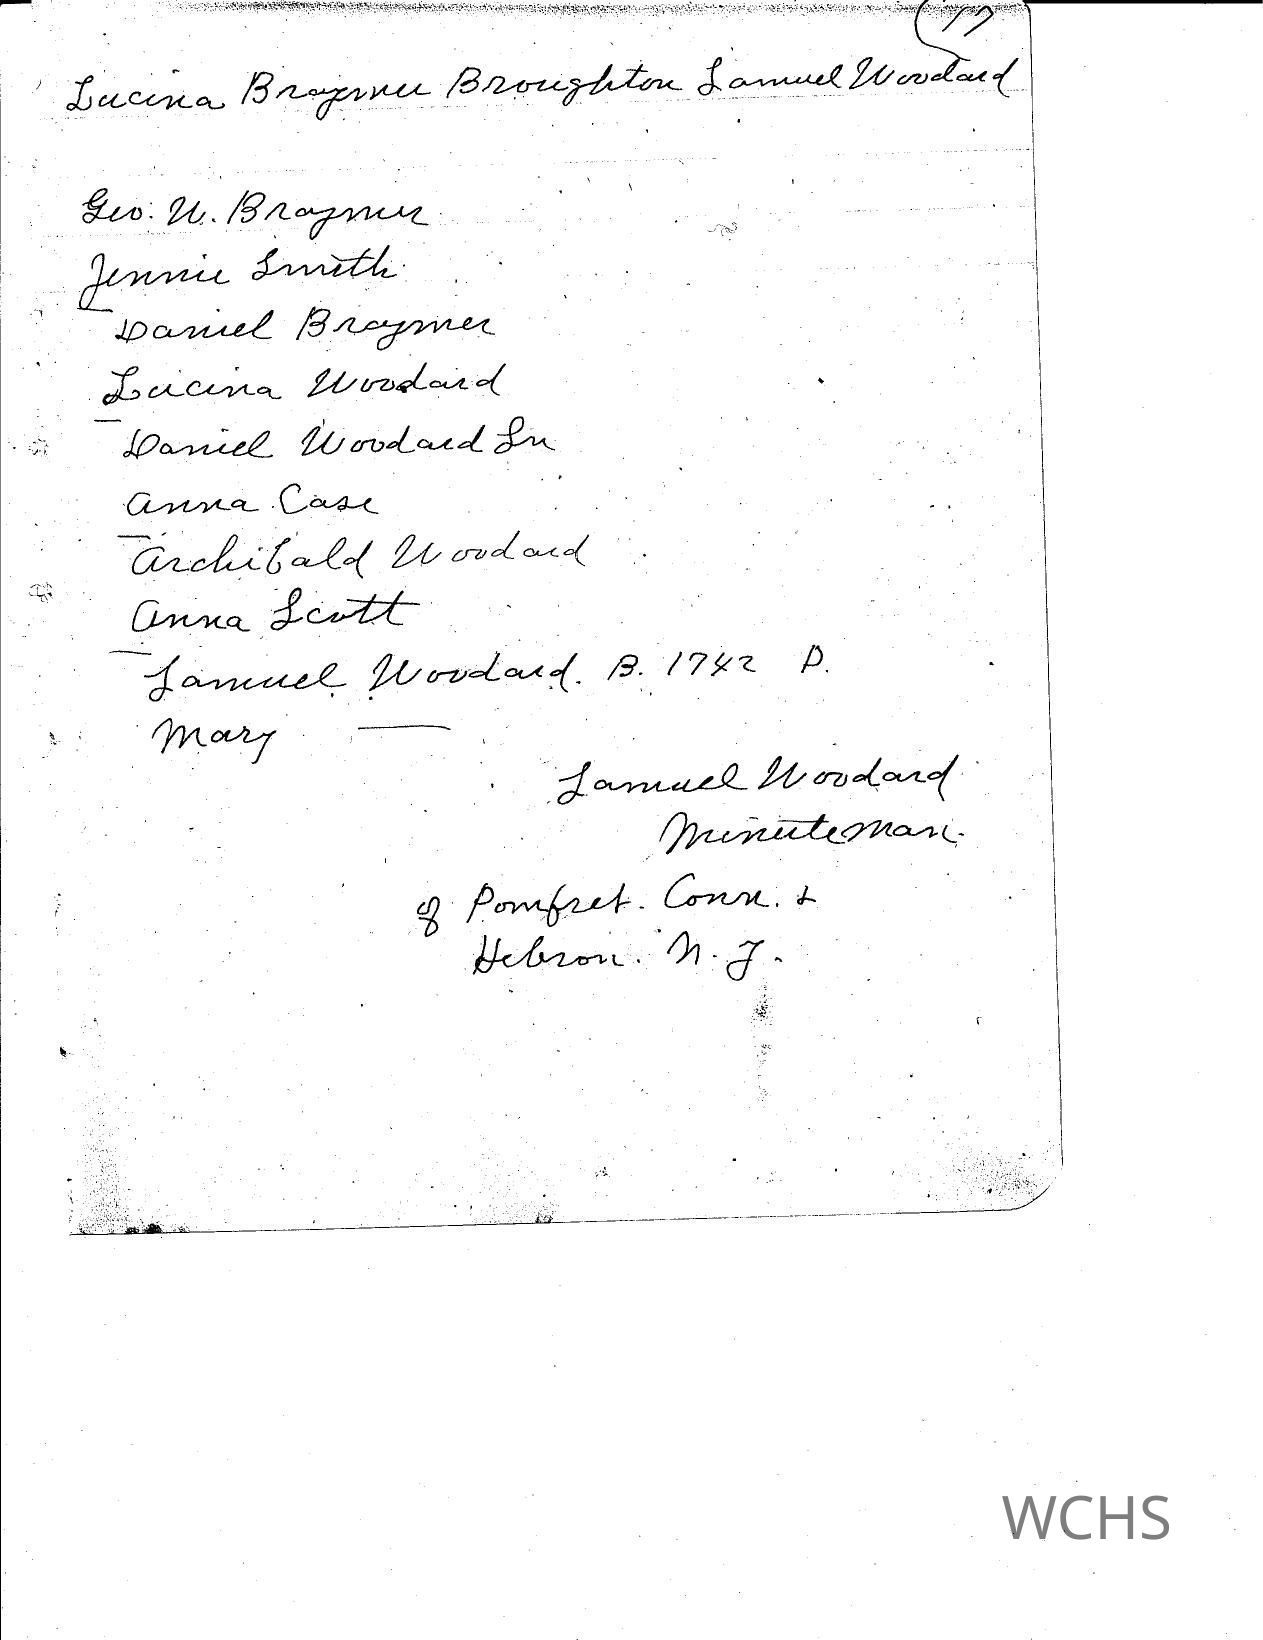 17
Lucina Braymer Broughton Samuel Woodard
Geo. W. Braymer
Jennie Smith
Daniel Braymer
Lucina Woodard
Daniel Woodard Sr
Anna Case
Archibald Woodard
Anna Scott
Samuel Woodard. B. 1742 D.
Mary ——
Samuel Woodard
Minuteman.
of Pomfret. Conn. &
Hebron. N.Y.
WCHS